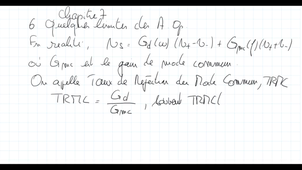 Chapitre 7
6 Quelques limites des A Op
En réalité, Vs = Gd(ω) (V+ - V-) + Gmc(f)(V+ + V-)
où Gmc est le gain de mode commun
On appelle Taux de Réjection du Mode Commun, TRMC
TRMC = Gd/Gmc, souvent TRMC